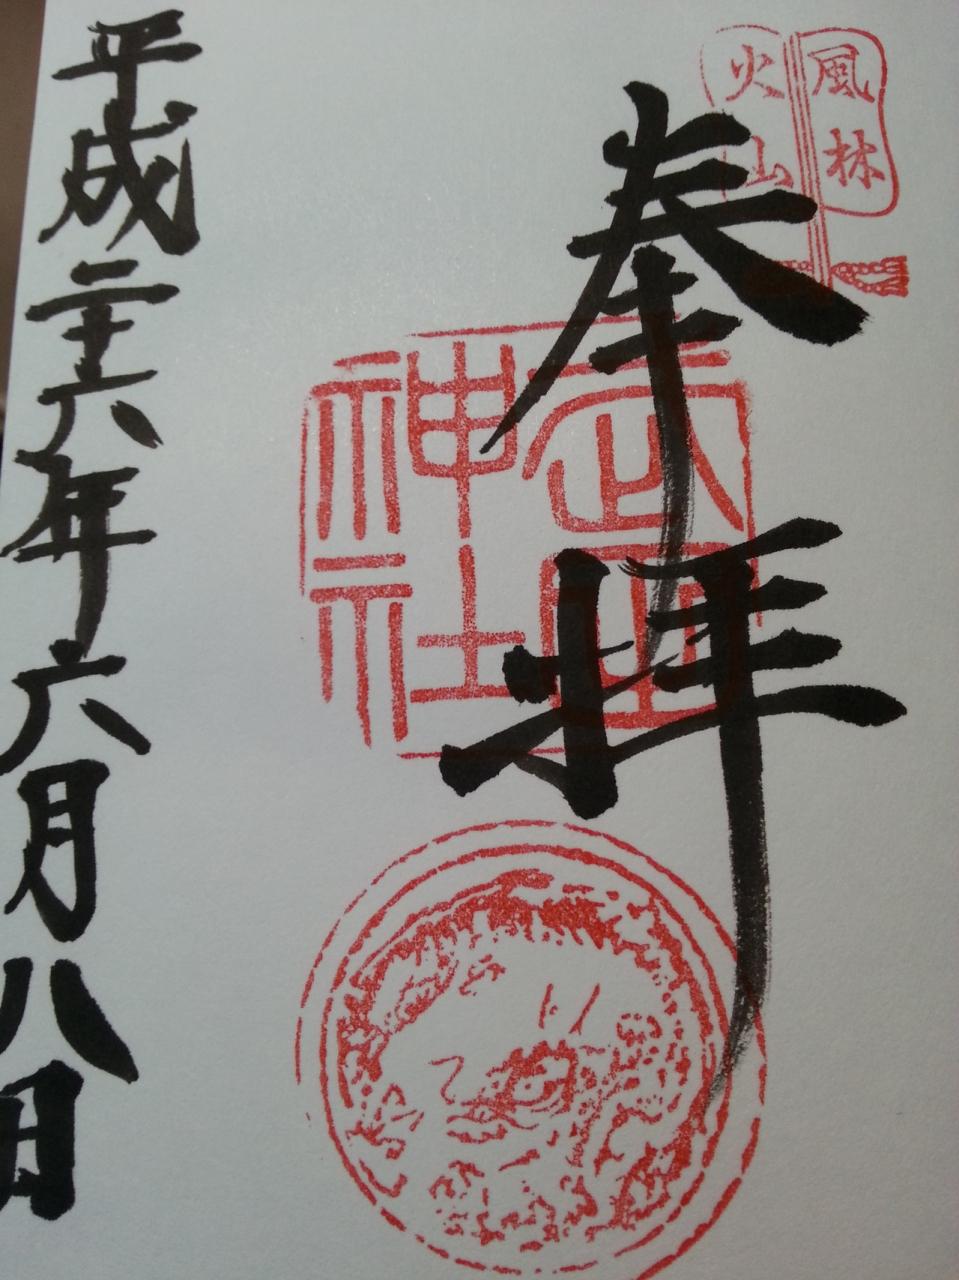 風林
火山
奉拝
武田
神社
平成二十六年六月八日